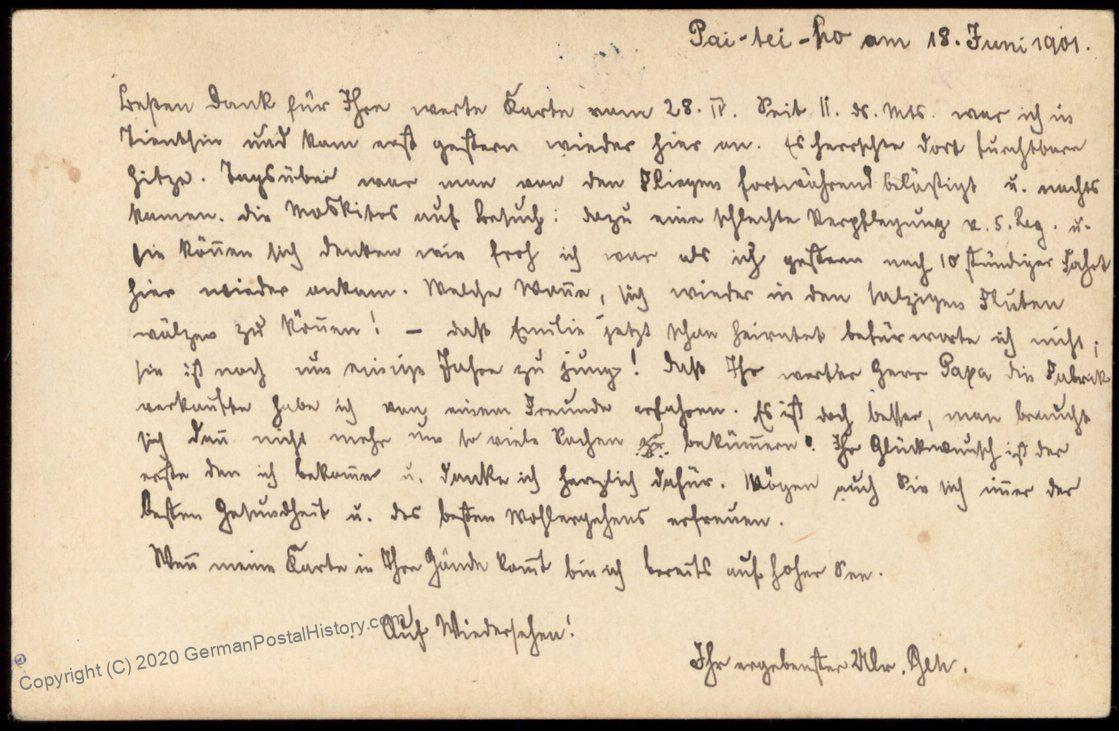 Pai-tei-ho am 18. Juni 1901.
Besten Dank für Ihre werte Karte vom 28. IV. Seit 11. ds. Mts. war ich in
Tientsin und kam erst gestern wieder hier an. Es herrschte dort furchtbare
Hitze. Tagsüber war man von den Fliegen fortwährend belästigt u. nachts
kamen die Moskitos auf Besuch: dazu eine schlechte Verpflegung v. 5. Reg. u.
Sie können sich denken wie froh ich war als ich gestern nach 10 stündiger Fahrt
hier wieder ankam. Welche Wonne, sich wieder in den salzigen Fluten
wälzen zu können! – Daß Emilie jetzt schon heiratet befürworte ich nicht,
sie ist noch um einige Jahre zu jung! Daß Ihr werter Herr Papa die Fabrik
verkaufte habe ich von einem Freunde erfahren. Es ist doch besser, man braucht
sich dann nicht mehr um so viele Sachen bekümmern. Ihr Glückwunsch ist der
erste den ich bekomme u. danke ich herzlich dafür. Mögen auch Sie sich immer der
besten Gesundheit u. des besten Wohlergehens erfreuen.
Wenn meine Karte in Ihre Hände kommt bin ich bereits auf hoher See.
Auf Wiedersehen!
Ihr ergebenster
Copyright (C) 2020 GermanPostalHistory.com